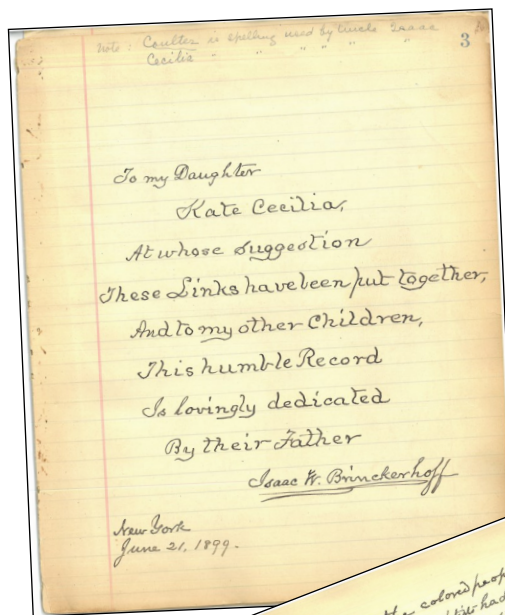 Note: Coulter is spelling used by Uncle Isaac
Cecilia - " " " " "
3
To my Daughter
Kate Cecilia,
At whose suggestion
These Links have been put together,
And to my other Children,
This humble Record
Is lovingly dedicated
By their Father
Isaac W. Brinckerhoff
New York
June 21, 1899.
the colored peop
had